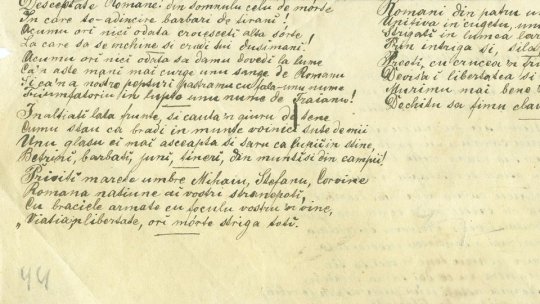 Desceptate Romane! din somnulu celu de morte
In care to-adincire barbari de tirani!
Acumu ori nici odata croiesceti alta sorte!
La care sa se mchine si crudi lui dusimani!
Acumu ori nici odata sa damu dovedi la lume
Ca'n aste mani mai curge unu sange de Romanu
Si ca'n a nostre pepturi pastramu cu fala-unu nume
Triumfatoriu in lupte unu nume de Traianu!
Inaltiati lata frunte, si cauta'n giuru de tene
Cumu stau ca bradi in munte voinici sute de mii
Unu glasu ei mai ascepta si saru ca lupii in stine,
Betrani, barbati, juni, tineri, din munti si din campii!
Priviti marete umbre Mihaiu, Stefanu, Corvine
Romana natiune ai vostri stranepoti,
Cu braciele armate cu foculu vostru'n vine,
"Viatia'n libertate, ori morte striga toti.
44
Romani din patru
Unitiva in cugetu,
Strigati in lumea
Prin intriga si, sila
Preoti, cu crucea'n
Devisa-i libertatea si
Murimu mai bene
Dechitu sa fimu